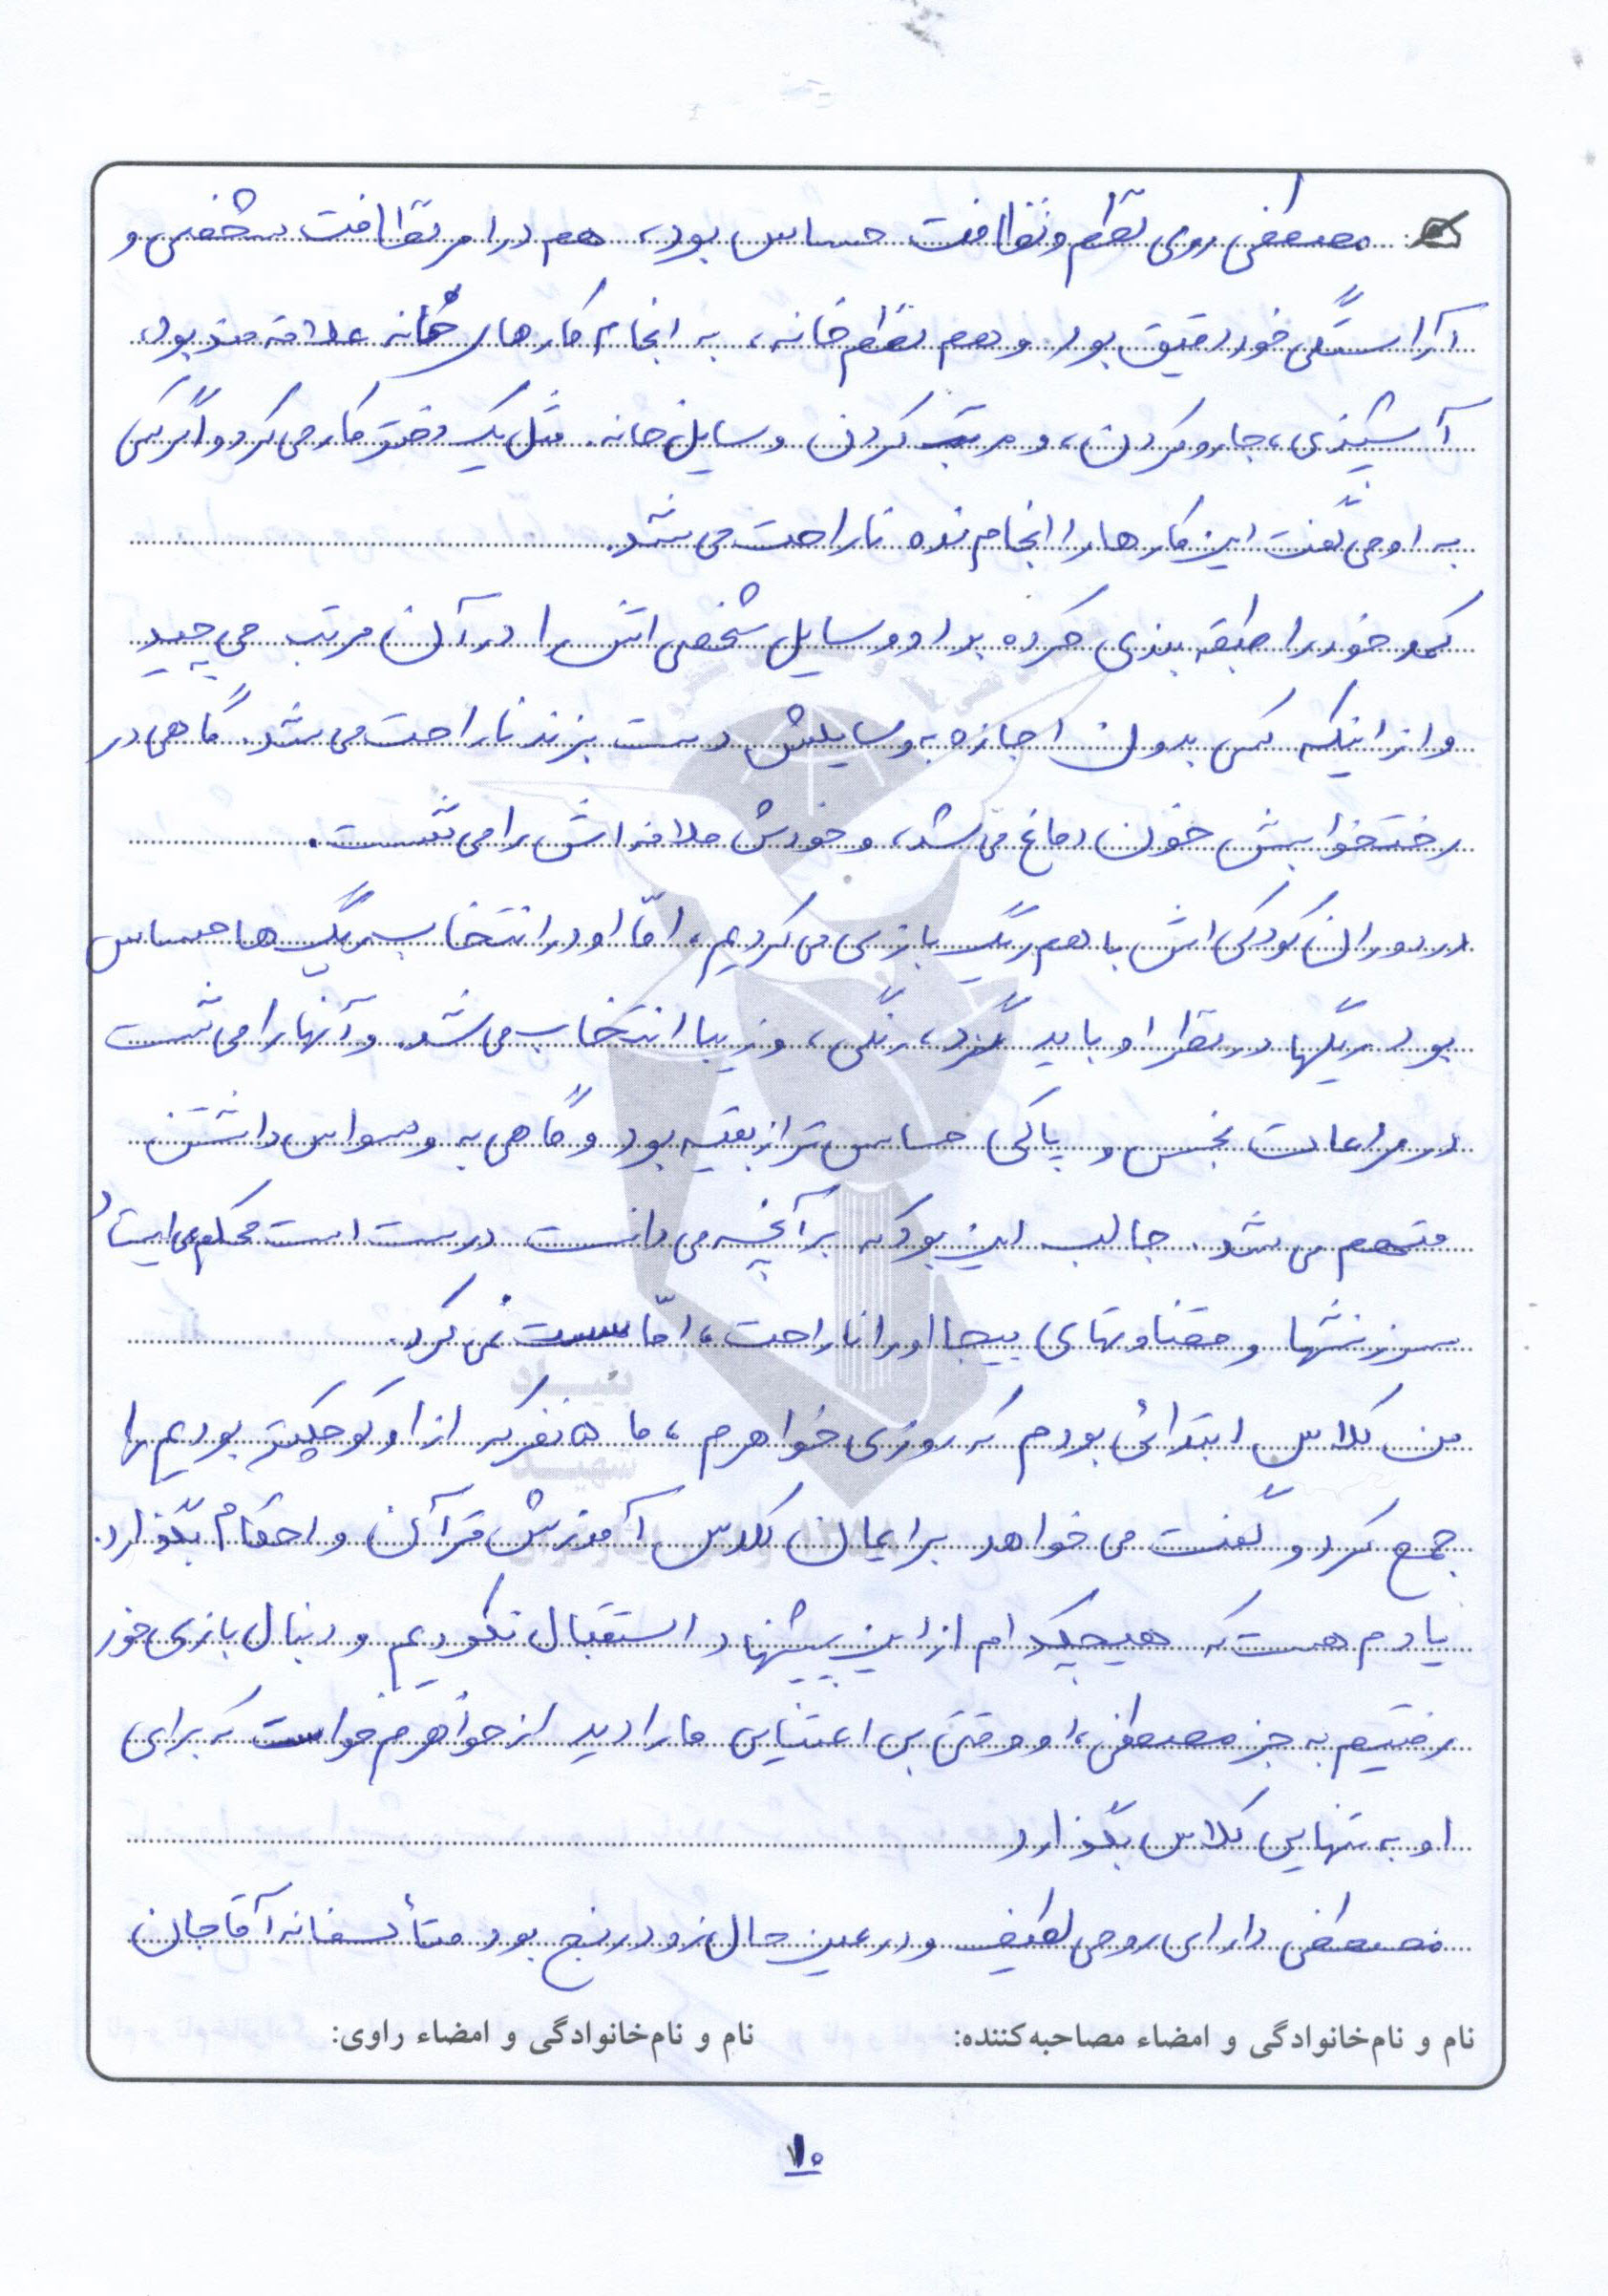 مصطفی روی نظم و نظافت حساس بود، هم در امر نظافت شخصی و
آراستگی خود دقیق بود و هم نظم خانه، به انجام کارهای خانه علاقه مند بود،
آشپزی، جارو کردن، و مرتب کردن وسایل خانه. مثل یک دختر کار می کرد و اگر کسی
به او می گفت این کارها را انجام نده ناراحت می شد.
کمد خود را طبقه بندی کرده بود و وسایل شخصی اش را در آن مرتب می چید
و از اینکه کسی بدون اجازه به وسایلش دست بزند ناراحت می شد. گاهی در
رختخوابش خون دماغ می شد، و خودش ملافه اش را می شست.
در دوران کودکی اش با هم ریگ بازی می کردیم، امّا او در انتخاب ریگ ها حساس
بود ریگها در نظر او باید گرد، رنگی، و زیبا انتخاب می شد. و آنها را می شست
در مراعات نجس و پاکی حساس تر از بقیه بود و گاهی به وسواس داشتن
متهم می شد. جالب این بود که بر آنچه می دانست درست است محکم می ایستاد
سرزنشها و قضاوتهای بیجا او را ناراحت، امّا سست نمی کرد.
من کلاس ابتدائی بودم که روزی خواهرم، ما ۵ نفر که از او کوچکتر بودیم را
جمع کرد و گفت می خواهد برایمان کلاس آموزش قرآن و احکام بگذارد.
یادم هست که هیچکدام از این پیشنهاد استقبال نکردیم و دنبال بازی خود
رفتیم به جز مصطفی، او وقتی بی اعتنایی ما را دید از خواهرم خواست که برای
او به تنهایی کلاس بگذارد
مصطفی دارای روحی لطیف و در عین حال زودرنج بود متأسفانه آقاجان
نام و نام‌خانوادگی و امضاء مصاحبه‌کننده: نام و نام‌خانوادگی و امضاء راوی:
۱۰
بنیاد
شهید